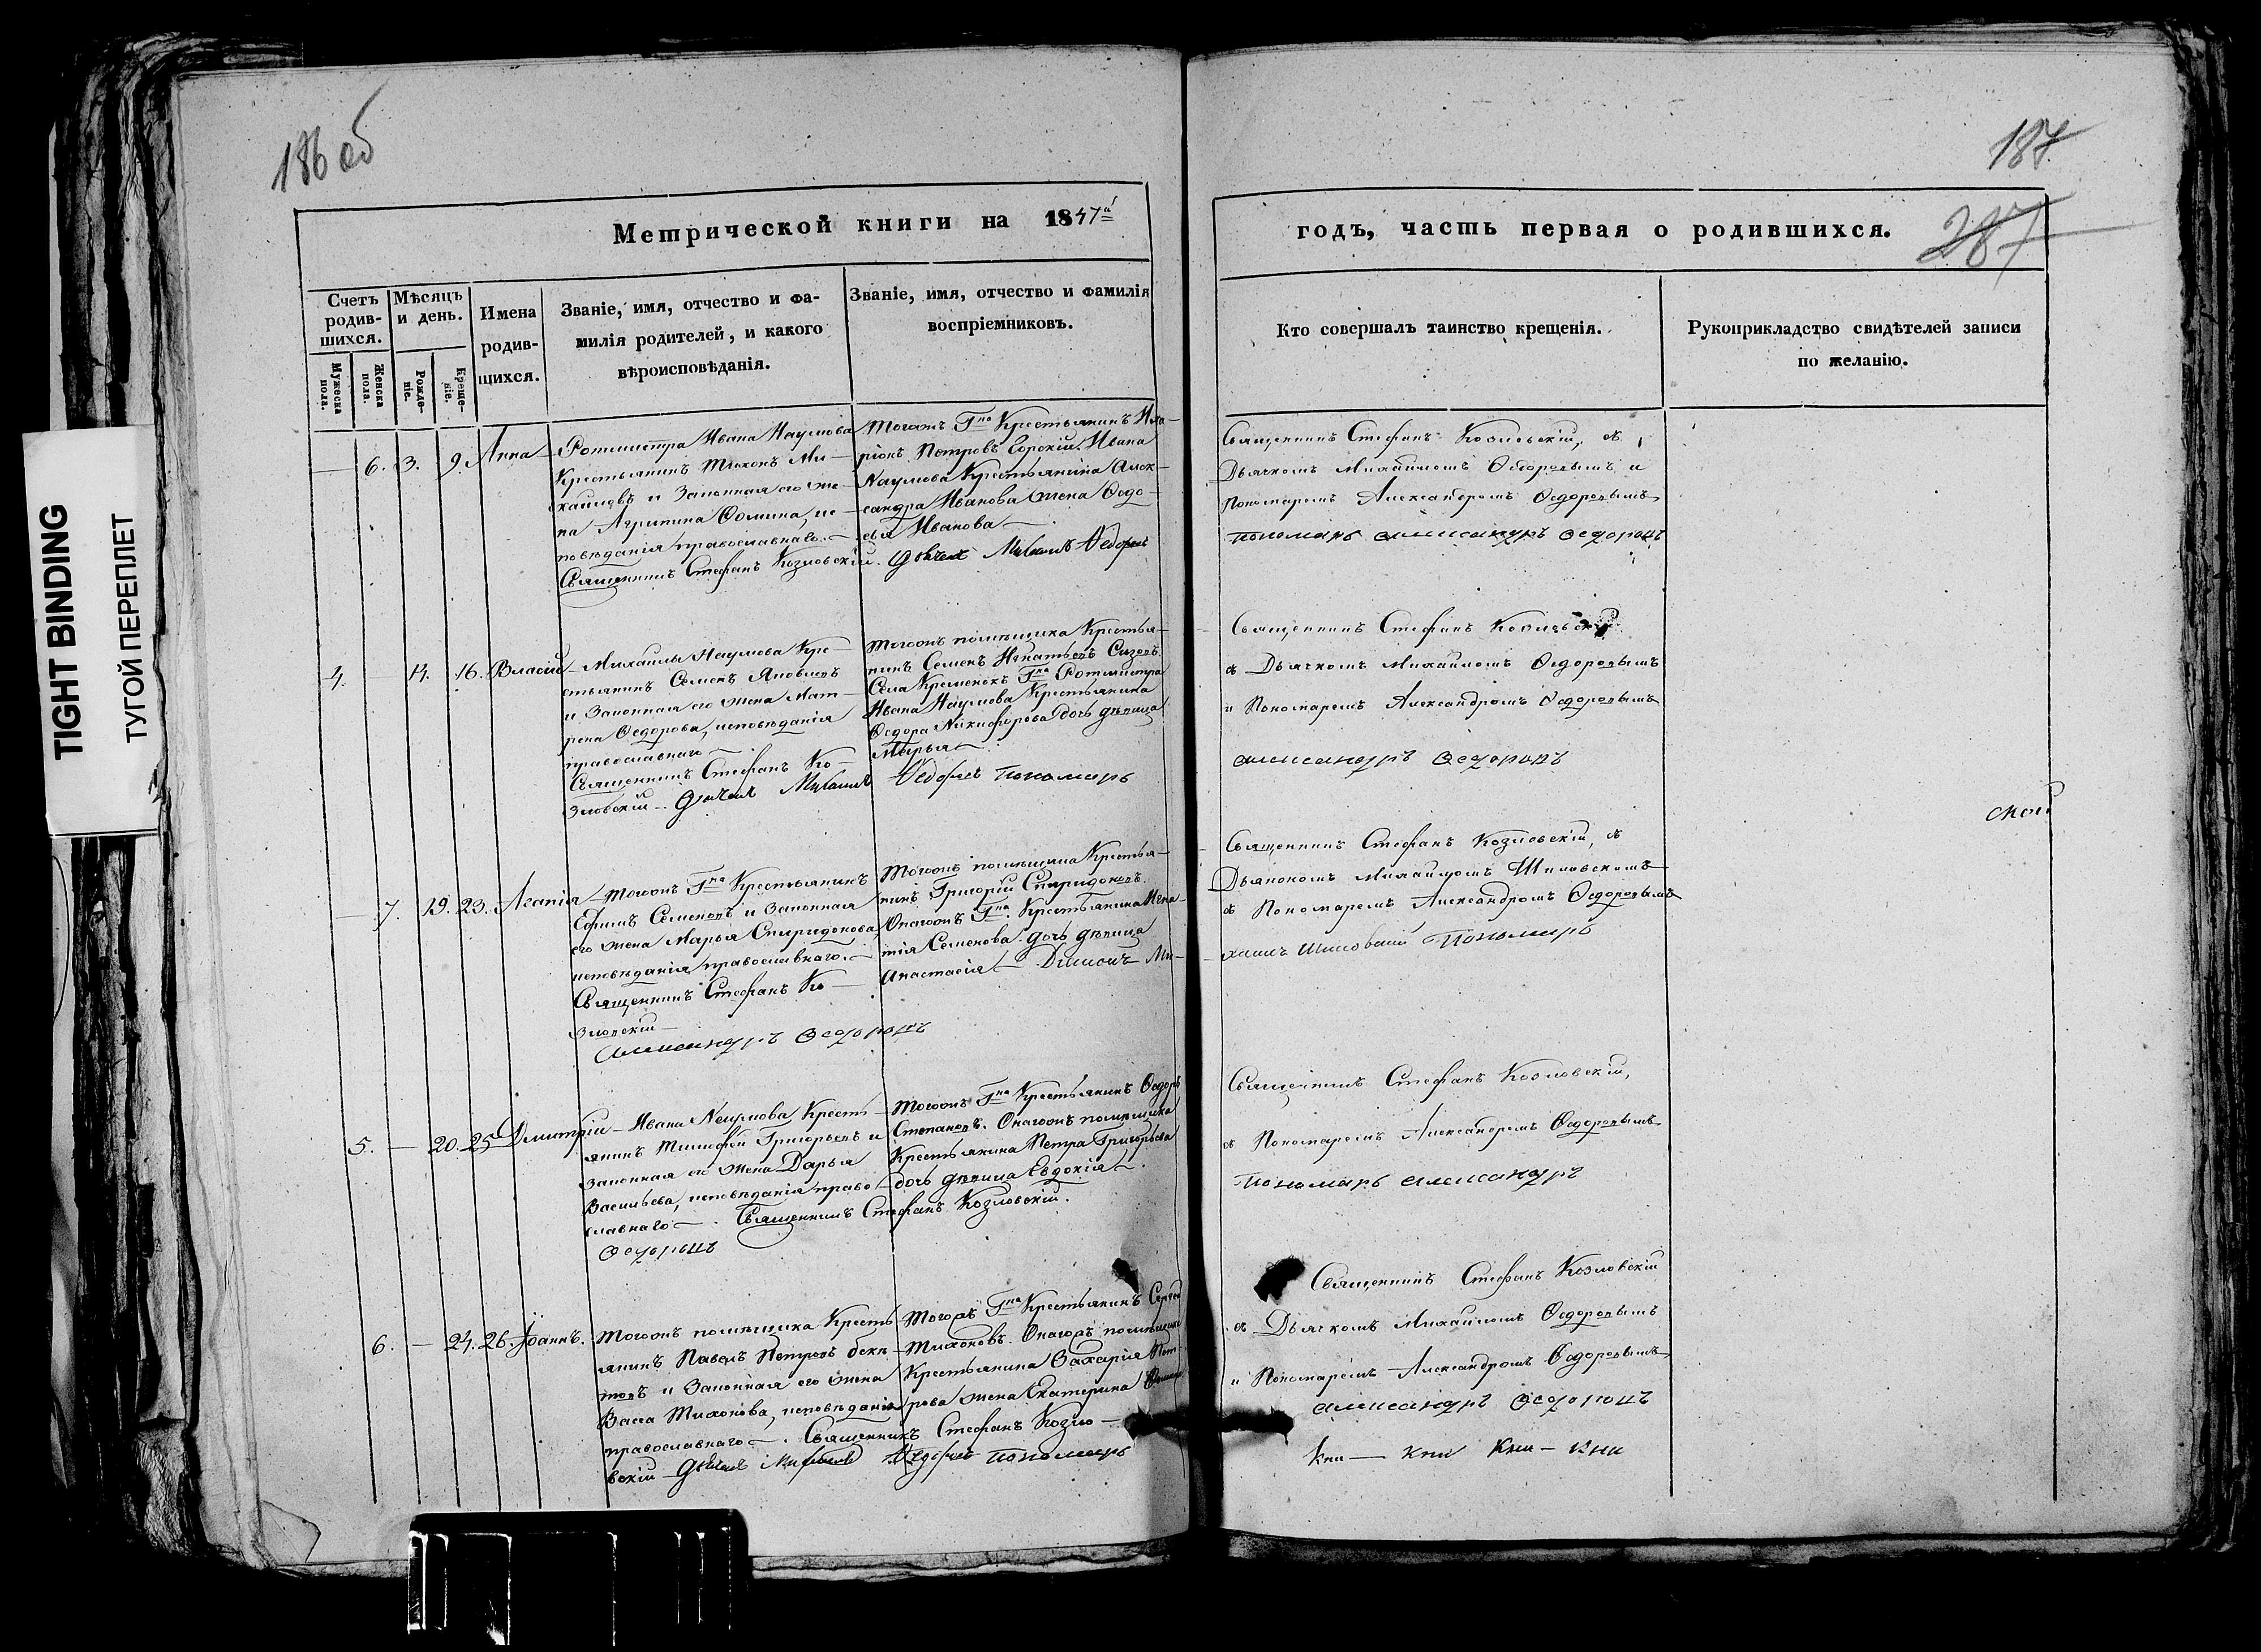 186 об
187
287
TIGHT BINDING
ТУГОЙ ПЕРЕПЛЕТ
Метрической книги на 1847
годъ, часть первая о родившихся.
Счетъ родив-шихся.
Мужеска пола.
Женска пола.
Мѣсяцъ и день.
Рожде-ніе.
Креще-ніе.
Имена
родив-
шихся.
Званіе, имя, отчество и фа-
милія родителей, и какого
вѣроисповѣданія.
Званіе, имя, отчество и фамилія
воспріемниковъ.
Кто совершалъ таинство крещенія.
Рукоприкладство свидѣтелей записи
по желанію.
— 6. 3. 9. Анна
Ротмистра Ивана Наумова
Крестьянинъ Тихонъ Ми-
хайловъ и Законная его же-
на Агрипина Фомина, ис-
повѣданія православнаго.
Священникъ Стефанъ Козловскій.
Тогожъ Гна Крестьянинъ Ила-
ріонъ Петровъ Горскій Ивана
Наумова Крестьянина Алек-
сандра Иванова жена Федо-
сья Иванова
Дьячекъ Михаилъ Федоровъ
Священникъ Стефанъ Козловскій, съ
Дьячкомъ Михаиломъ Федоровымъ и
Пономаремъ Александромъ Федоровымъ
пономарь александръ Федоровъ
4. — 14. 16. Власій
Михаилы Наумова Кре-
стьянинъ Семенъ Яковлевъ
и Законная его жена Мат-
рена Федорова, исповѣданія
православнаго
Священникъ Стефанъ Ко-
зловскій. Дьячекъ Михаилъ
Тогожъ помѣщика Крестья-
нинъ Семенъ Игнатьевъ Сизовъ.
Села Кременокъ Гна Ротмистра
Ивана Наумова Крестьянина
Федора Никифорова дочь дѣвица
Марья
Федоровъ пономарь
Священникъ Стефанъ Козловскій
съ Дьячкомъ Михаиломъ Федоровымъ
и Пономаремъ Александромъ Федоровымъ
александръ Федоровъ
— 7. 19. 23. Агапія
Тогожъ Гна Крестьянинъ
Ефимъ Семеновъ и Законная
его жена Марья Спиридонова
исповѣданія православнаго.
Священникъ Стефанъ Ко-
зловскій
александръ Федоровъ
Тогожъ помѣщика Крестья-
нинъ Григорій Спиридоновъ.
Онагожъ Гна Крестьянина Игна-
тія Семенова дочь дѣвица
Анастасія Діаконъ Ми-
Священникъ Стефанъ Козловскій, съ
Дьякономъ Михаиломъ Шиловскомъ
съ Пономаремъ Александромъ Федоровымъ
хаилъ Шиловскій Пономарь
5. — 20. 25 Димитрій
Ивана Наумова Кресть-
янинъ Тимофей Григорьевъ и
Законная его жена Дарья
Васильева, исповѣданія право-
славнаго. Священникъ Стефанъ Козловскій.
Федоровъ
Тогожъ Гна Крестьянинъ Федоръ
Степановъ. Онагожъ помѣщика
Крестьянина Петра Григорьева
дочь дѣвица Евдокія
Священникъ Стефанъ Козловскій,
съ Пономаремъ Александромъ Федоровымъ
Пономарь александръ
6. — 24. 26. Іоаннъ.
Тогожъ помѣщика Кресть-
янинъ Павелъ Петровъ
и Законная его жена
Васса Тихонова, исповѣданія
православнаго. Священникъ Стефанъ Козло-
вскій Дьячекъ Михаилъ Федоровъ пономарь
Тогожъ Гна Крестьянинъ Сергей
Тихоновъ. Онагожъ помѣщика
Крестьянина Захарія Пет-
рова жена Екатерина
Священникъ Стефанъ Козловскій
съ Дьячкомъ Михаиломъ Федоровымъ
и Пономаремъ Александромъ Федоровымъ
александръ Федоровъ